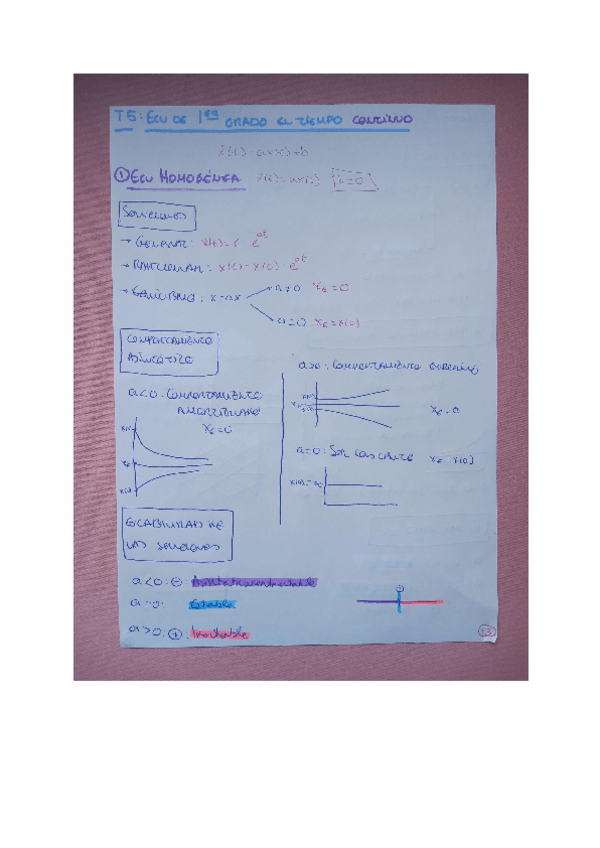 T5: ECU DE 1ER GRADO EL TIEMPO CONTINUO
ẋ(t) = ax(t)+b
① ECU HOMOGÉNEA ẋ(t) = ax(t) b=0
SOLUCIONES
→ GENERAL: x(t) = C e^at
→ PARTICULAR: x(t) = x(0) e^at
→ EQUILIBRIO: ẋ = ax
a≠0 xₑ = 0
a=0 xₑ = x(0)
COMPORTAMIENTO
ASINTÓTICO
a<0: COMPORTAMIENTO
AMORTIGUADO
xₑ = 0
x(0)
xₑ
x(0)
a>0: COMPORTAMIENTO
xₑ = 0
a=0: SOL CONSTANTE xₑ = x(0)
x(0) = xₑ
ESTABILIDAD DE
LAS SOLUCIONES
a<0: ⊖:
a=0: Estable
a>0: ⊕: Inestable
13